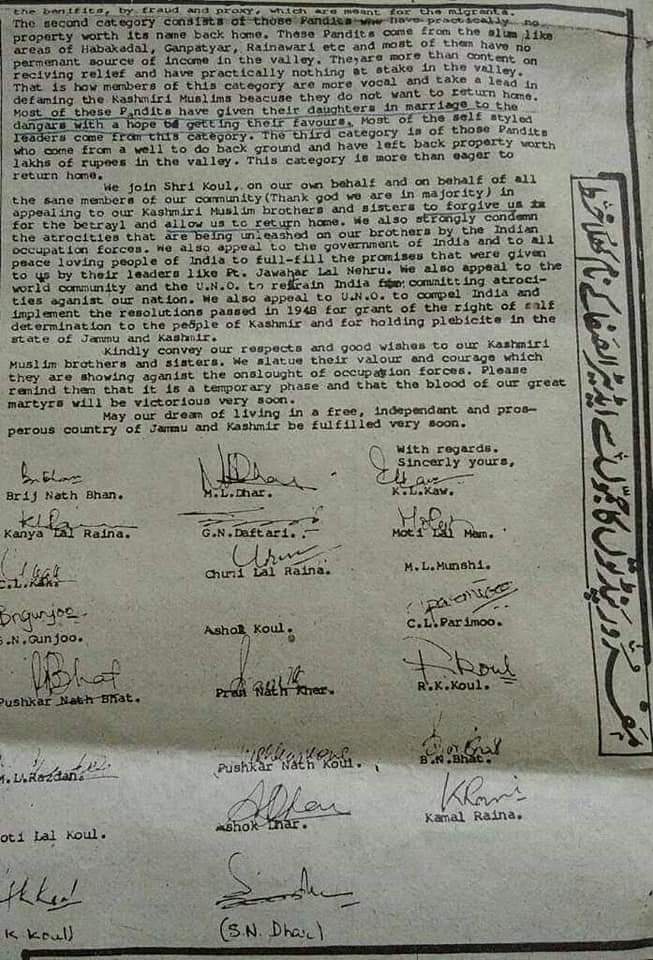 the benifits, by fraud and proxy, which are meant for the migrants.
The second category consists of those Pandits who have practically no
property worth its name back home. These Pandits come from the slum like
areas of Habakadal, Ganpatyar, Rainawari etc and most of them have no
permenant source of income in the valley. They are more than content on
reciving relief and have practically nothing at stake in the valley.
That is how members of this category are more vocal and take a lead in
defaming the Kashmiri Muslims beacuse they do not want to return home.
Most of these Pandits have given their daughters in marriage to the
dangars with a hope of getting their favours. Most of the self styled
leaders come from this category. The third category is of those Pandits
who come from a well to do back ground and have left back property worth
lakhs of rupees in the valley. This category is more than eager to
return home.
We join Shri Koul, on our own behalf and on behalf of all
the sane members of our community(Thank god we are in majority) in
appealing to our Kashmiri Muslim brothers and sisters to forgive us
for the betrayl and allow us to return home. We also strongly condemn
the atrocities that are being unleashed on our brothers by the Indian
occupation forces. We also appeal to the government of India and to all
peace loving people of India to full-fill the promises that were given
to us by their leaders like Pt. Jawahar Lal Nehru. We also appeal to the
world community and the U.N.O. to refrain India from committing atroci-
ties aganist our nation. We also appeal to U.N.O. to compel India and
implement the resolutions passed in 1948 for grant of the right of self
determination to the people of Kashmir and for holding plebicite in the
state of Jammu and Kashmir.
Kindly convey our respects and good wishes to our Kashmiri
Muslim brothers and sisters. We slatue their valour and courage which
they are showing aganist the onslought of occupation forces. Please
remind them that it is a temporary phase and that the blood of our great
martyrs will be victorious very soon.
May our dream of living in a free, independant and pros-
perous country of Jammu and Kashmir be fulfilled very soon.
With regards.
Sincerly yours,
Brij Nath Bhan.
M.L.Dhar.
K.L.Kaw.
Kanya Lal Raina.
G.N.Daftari.
Moti Lal Mam.
C.L.Kak.
Chuni Lal Raina.
M.L.Munshi.
Bngunjoo
S.N.Gunjoo.
Ashok Koul.
C.L.Parimoo.
Bhat
Pushkar Nath Bhat.
Pran Nath Kher.
R Koul
R.K.Koul.
M.L.Razdan.
Pushkar Nath Koul.
B.N.Bhat.
oti Lal Koul.
Ashok Dhar.
Kamal Raina.
K Koul)
(S.N. Dhar)